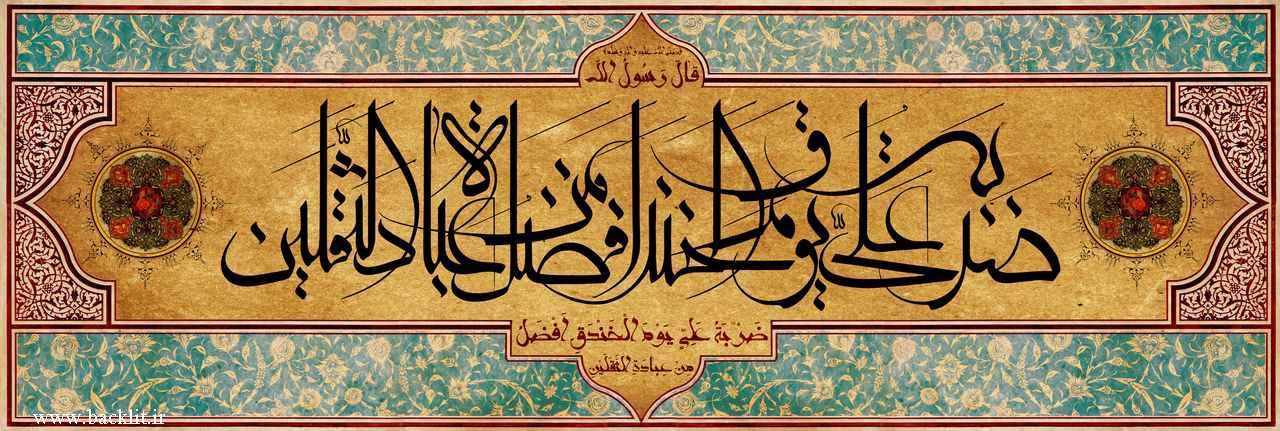 قال رسول الله
ضربة علي يوم الخندق افضل من عبادة الثقلين
ضَرْبَةُ عَلِيٍّ يَوْمَ الْخَنْدَقِ أَفْضَلُ
مِن عِبادَةِ الثَّقَلَيْنِ
www.backlit.ir